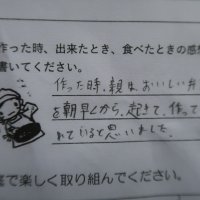 作った時、出来たとき、食べたときの感想
書いてください。
作った時、親は、おいしい弁
を朝早くから、起きて、作って
れていると思いました。
庭で楽しく取り組んでください。